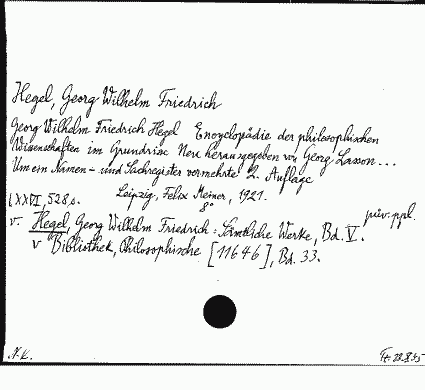 Hegel, Georg Wilhelm Friedrich
Georg Wilhelm Friedrich Hegel Encyclopädie der philosophischen
Wissenschaften im Grundrisse Neu herausgegeben von Georg Lasson...
Um ein Namen- und Sachregister vermehrte 2. Auflage
LXXVI, 528 s. Leipzig, Felix Meiner, 1921.
8°
priv. ppl.
v. Hegel, Georg Wilhelm Friedrich: Sämtliche Werke, Bd. V.
v Bibliothek, Philosophische [11646], Bd. 33.
N.K.